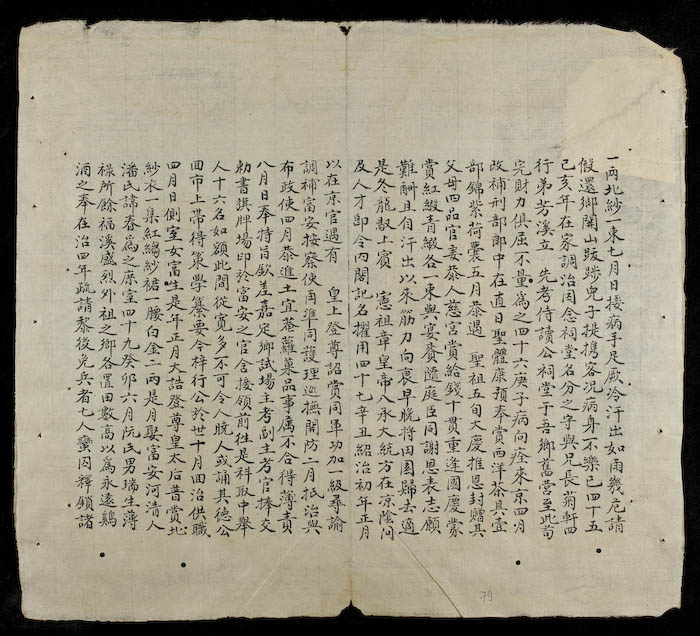 一兩北紗一束七月日接病手足厥冷汗出如雨幾危請
假還鄉關山跋踄兒子提携客况病身不樂已四十五
己亥年在家調治因念祠堂名分之守與兄長菊軒四
行弟芳溪立 先考侍讀公祠堂于吾鄉舊營至此苟
完財力俱屈不量爲之四十六庚子病向痊來京四月
改補刑部郎中在直日聖體康預奉賞西洋茶具壹
部錦紫荷囊五月恭遇 聖祖五旬大慶推恩封贈其
父母四品官妻恭人慈宮賞給錢十貫重逢國慶蒙
賞紅緞青緞各一束與宴賚隨庭臣同謝恩表志願
難酬且自汗出以來筋力向衰早晚將田園歸去適
是冬龍馭上賓 憲祖章皇帝入承大統方在凉陰间
及人才卽令内閣記名擢用四十七辛丑紹治初年正月
以在京官遇有 皇上登尊詔賞同軍功加一級尋諭
調補富安按察使再準同護理巡撫關防二月抵治與
布政使四月恭進土宜菴蘿菓品事属不合得薄責
八月日奉特旨欽差嘉定鄉試場主考副主考官捧交
勅書旗牌場印於富安之官舍接領前徃是科取中舉
人十六名如額此間從寬多不可令人脫人或誦其德公
回市上帶得策學纂要令梓行公於世十月回治供職
四月日側室女富生是年正月大誥登尊皇太后普賞北
紗衣一集紅縐紗裙一腰白金二兩是月娶富安河清人
潘氏諱春爲之庶室四十九癸卯六月阮氏男瑞生薄
祿所餘福溪盛烈外祖之鄉各置田數高以爲永遠鷄
酒之奉在治四年疏請黎後免兵者七人蠻囚釋鎖諸
79